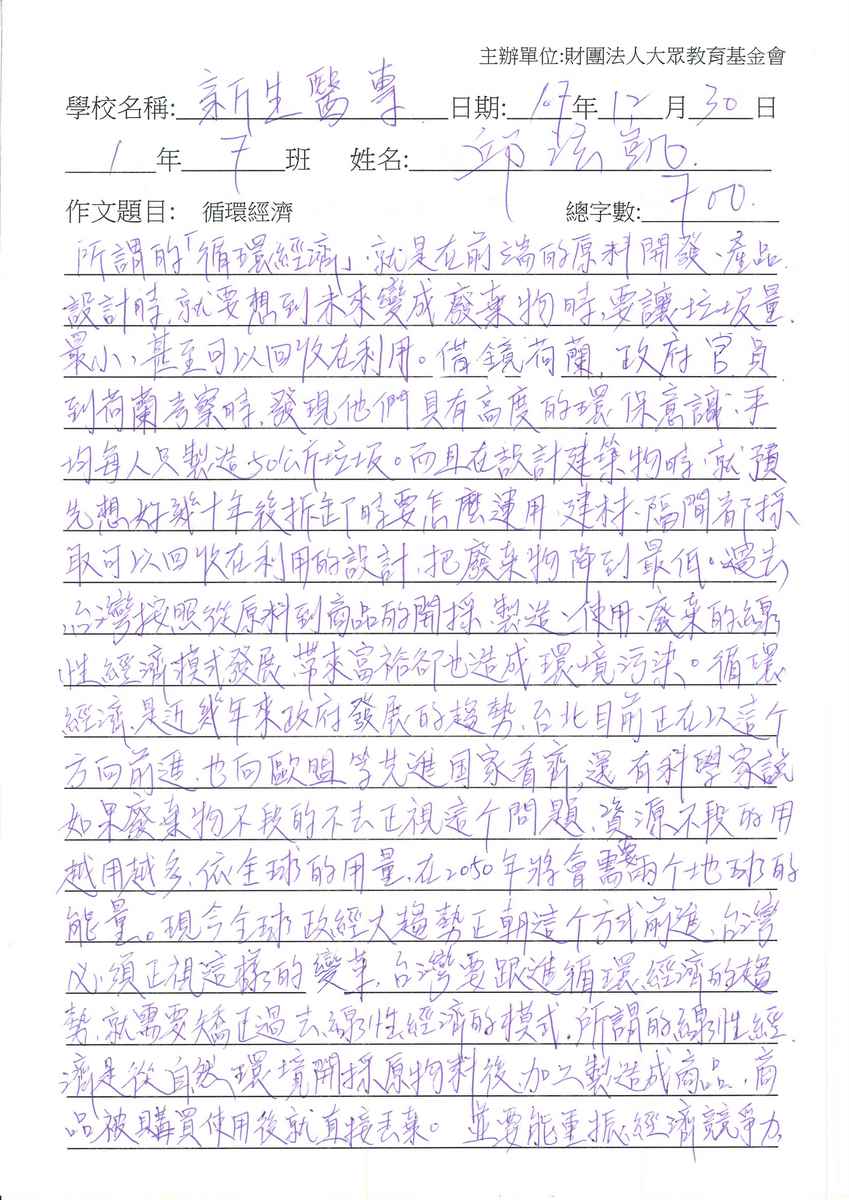 主辦單位:財團法人大眾教育基金會
學校名稱: 新生醫專 日期: 107年12月30日
1年7班 姓名: 邱泫凱
作文題目: 循環經濟 總字數: 700
所謂的「循環經濟」,就是在前端的原料開發、產品
設計時,就要想到未來變成廢棄物時,要讓垃圾量
最小,甚至可以回收在利用。借鏡荷蘭,政府官員
到荷蘭考察時,發現他們具有高度的環保意識,平
均每人只製造50公斤垃圾。而且在設計建築物時,就預
先想好幾十年後拆卸時要怎麼運用,建材、隔間都採
取可以回收在利用的設計,把廢棄物降到最低。過去
台灣按照從原料到商品的開採、製造、使用、廢棄的線
性經濟模式發展,帶來富裕卻也造成環境污染。循環
經濟,是近幾年來政府發展的趨勢,台北目前正在以這个
方向前進,也向歐盟等先進国家看齊,還有科學家說
如果廢棄物不段的不去正視這个問題,資源不段的用
越用越多,依全球的用量,在2050年將會需要兩个地球的
能量。現今全球政經大趨勢正朝這个方式前進,台灣
必須正視這樣的變革,台灣要跟進循環經濟的趨
勢,就需要矯正過去線性經濟的模式,所謂的線性經
濟是從自然環境開採原物料後,加工製造成商品,商
品被購買使用後就直接丟棄。 並要能重振經濟競爭力,